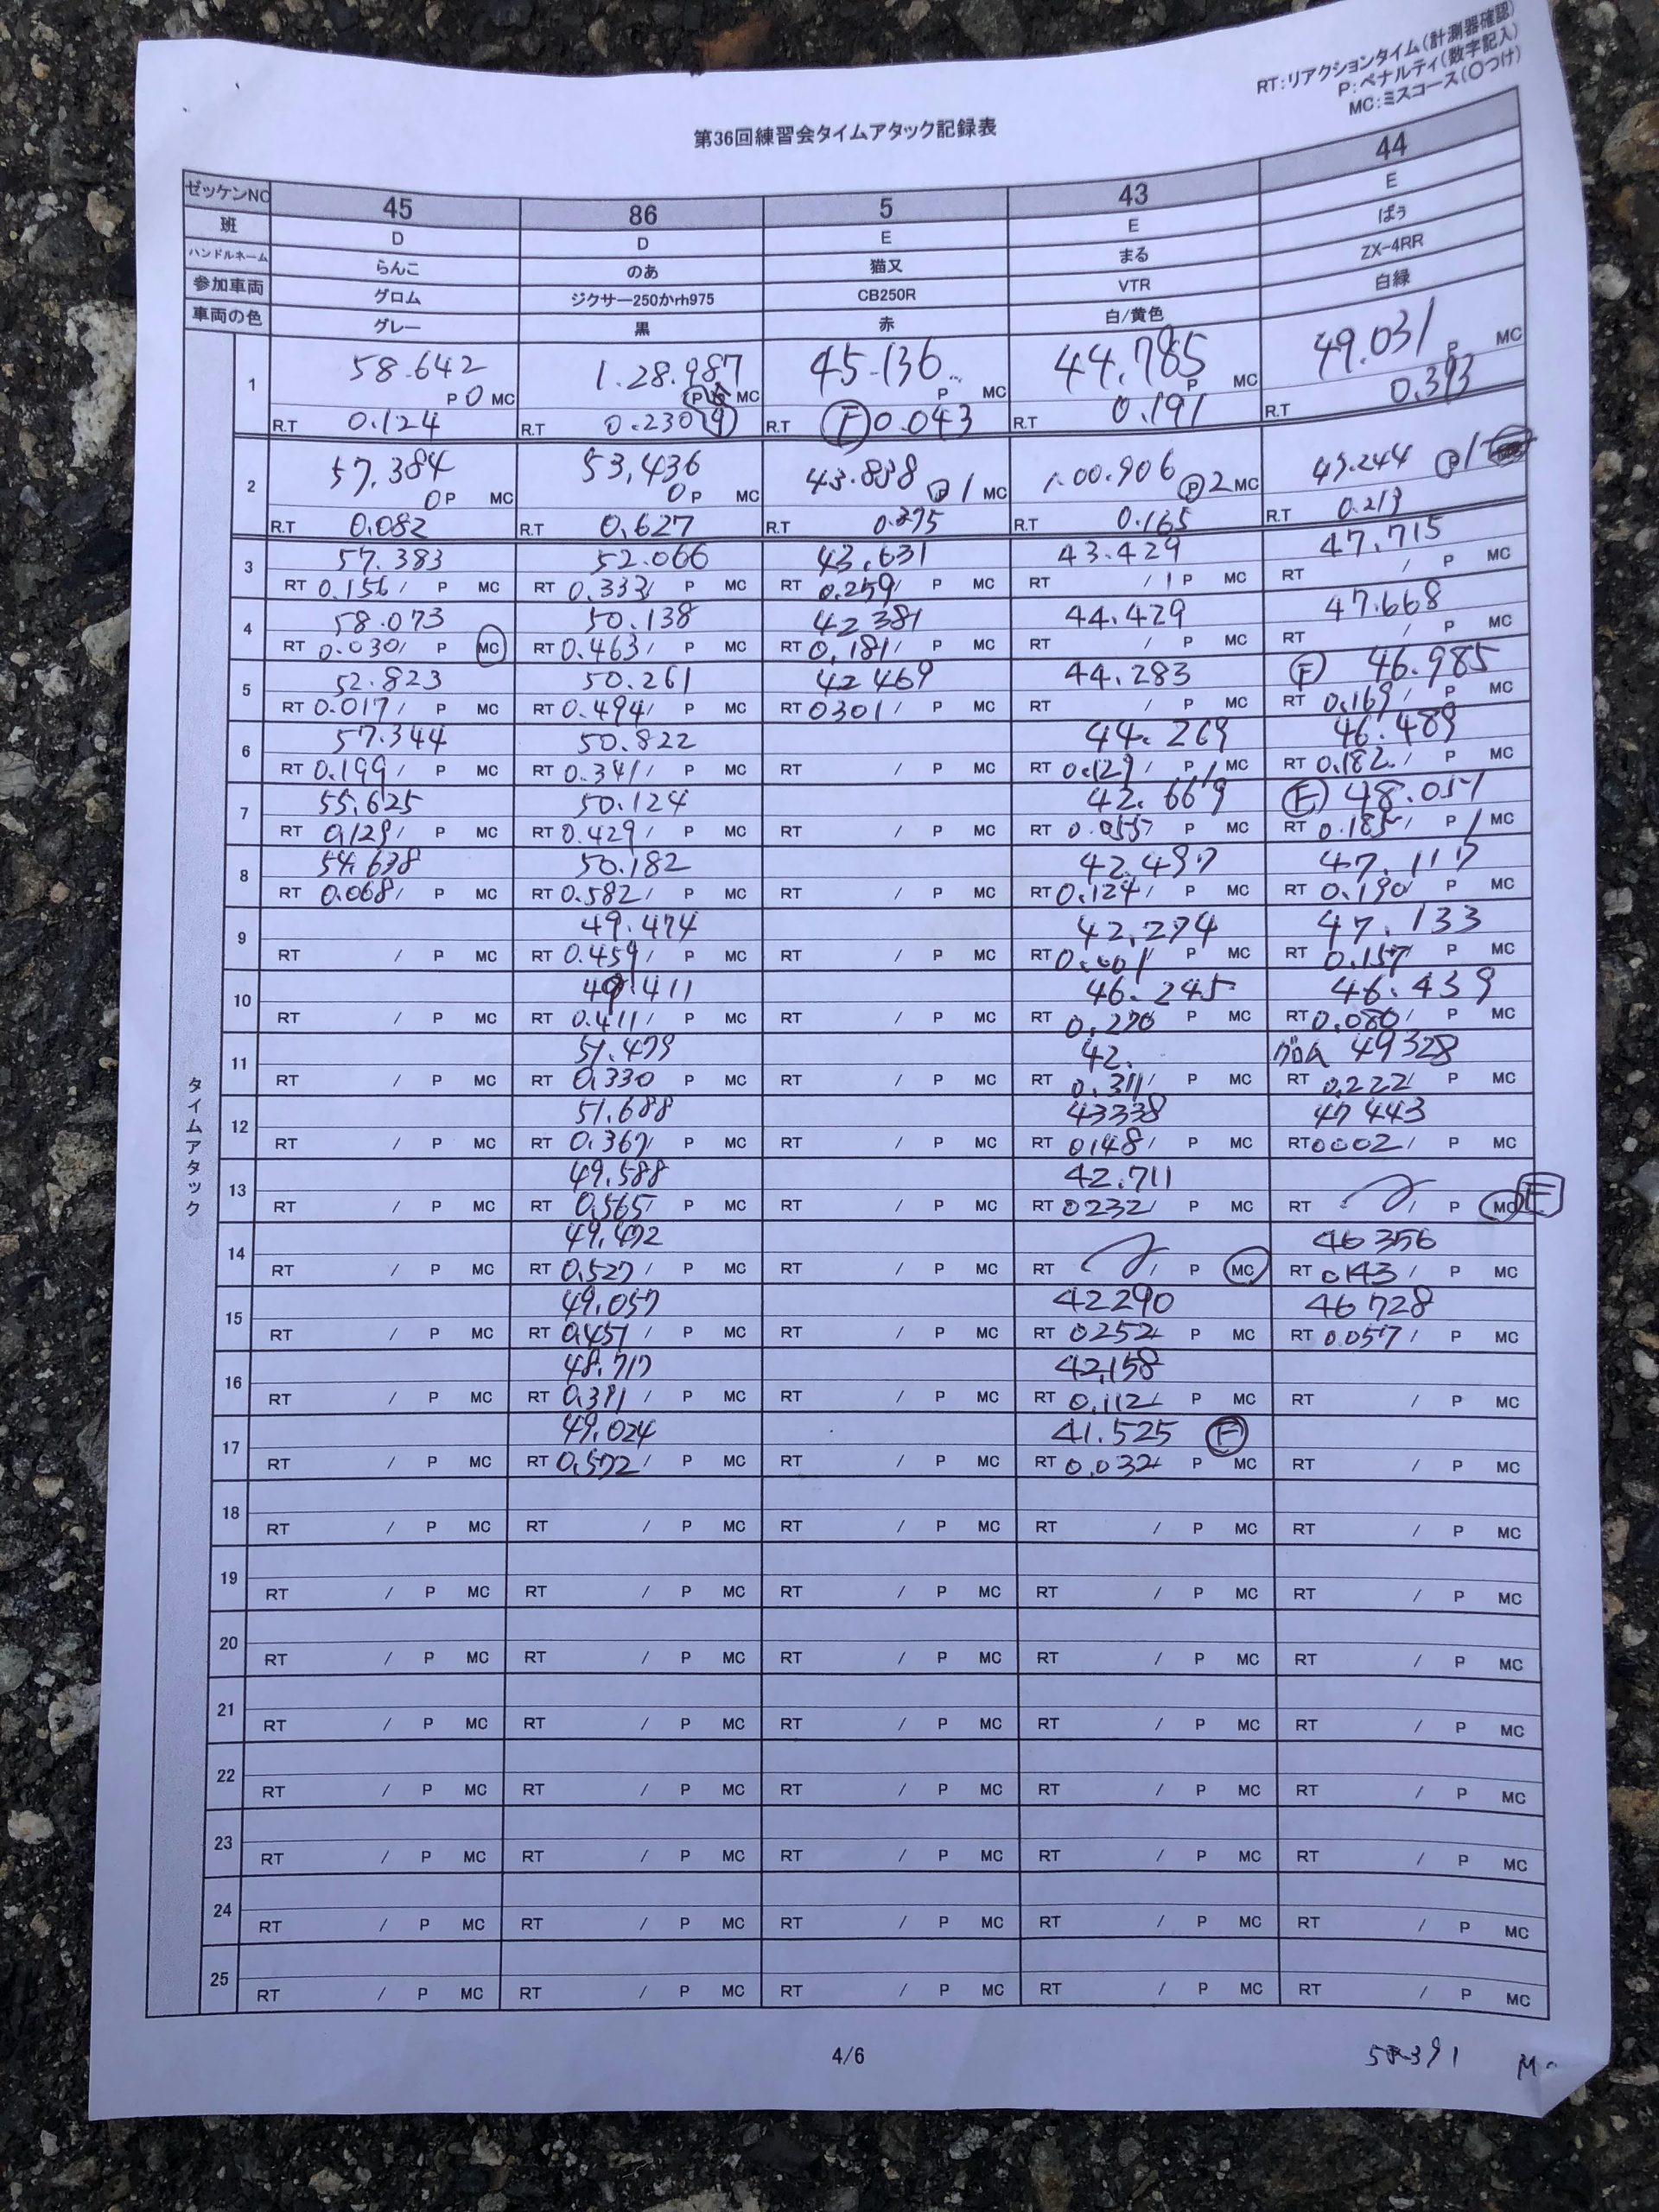 RT:リアクションタイム(計測器確認)
P:ペナルティ(数字記入)
MC:ミスコース(〇つけ)
第36回練習会タイムアタック記録表
ゼッケンNO 45 86 5 43 44
班 D D E E E
ハンドルネーム らんこ のあ 猫又 まる ばぅ
参加車両 グロム ジクサー250かrh975 CB250R VTR ZX-4RR
車両の色 グレー 黒 赤 白/黄色 白緑
タイムアタック
1 58.642 1.28.987 45.136 44.785 49.031
P 0 MC P MC P MC P MC P MC
R.T 0.124 R.T 0.230 9 R.T F 0.043 R.T 0.191 R.T 0.393
2 57.384 53.436 43.838 P 1 MC 1.00.906 P 2 MC 49.244 P 1
0 P MC 0 P MC
R.T 0.082 R.T 0.627 R.T 0.375 R.T 0.165 R.T 0.219
3 57.383 52.066 43.631 43.429 47.715
RT 0.156 / P MC RT 0.333 / P MC RT 0.259 / P MC RT / 1 P MC RT / P MC
4 58.073 50.138 42 381 44.429 47.668
RT 0.030 / P MC RT 0.463 / P MC RT 0.181 / P MC RT / P MC RT / P MC
5 52.823 50.261 42 469 44.283 F 46.985
RT 0.017 / P MC RT 0.494 / P MC RT 0301 / P MC RT / P MC RT 0.169 / P MC
6 57.344 50.822 44.269 46.489
RT 0.199 / P MC RT 0.341 / P MC RT / P MC RT 0.129 / P 1 MC RT 0.182 / P MC
7 55.625 50.124 42.669 F 48.057
RT 0.129 / P MC RT 0.429 / P MC RT / P MC RT 0.055 / P MC RT 0.185 / P 1 MC
8 54.638 50.182 42.497 47.117
RT 0.068 / P MC RT 0.582 / P MC RT / P MC RT 0.124 / P MC RT 0.190 / P MC
9 49.474 42.274 47.133
RT / P MC RT 0.459 / P MC RT / P MC RT 0.001 / P MC RT 0.157 P MC
10 49.411 46.245 46.439
RT / P MC RT 0.411 / P MC RT / P MC RT 0.270 P MC RT 0.080 / P MC
11 51.479 42. グロム 49328
RT / P MC RT 0.330 P MC RT / P MC RT 0.311 / P MC RT 0.222 / P MC
12 51.688 43338 47 443
RT / P MC RT 0.367 / P MC RT / P MC RT 0148 / P MC RT 0002 / P MC
13 49.588 42.711
RT / P MC RT 0.565 / P MC RT / P MC RT 0232 / P MC RT / P MC F
14 49.472 46356
RT / P MC RT 0.527 / P MC RT / P MC RT / P MC RT 0143 / P MC
15 49.057 42290 46728
RT / P MC RT 0.451 / P MC RT / P MC RT 0252 P MC RT 0.057 / P MC
16 48.717 42.158
RT / P MC RT 0.391 / P MC RT / P MC RT 0.112 P MC RT / P MC
17 49.024 41.525 F
RT / P MC RT 0.572 / P MC RT / P MC RT 0.032 P MC RT / P MC
18
RT / P MC RT / P MC RT / P MC RT / P MC RT / P MC
19
RT / P MC RT / P MC RT / P MC RT / P MC RT / P MC
20
RT / P MC RT / P MC RT / P MC RT / P MC RT / P MC
21
RT / P MC RT / P MC RT / P MC RT / P MC RT / P MC
22
RT / P MC RT / P MC RT / P MC RT / P MC RT / P MC
23
RT / P MC RT / P MC RT / P MC RT / P MC RT / P MC
24
RT / P MC RT / P MC RT / P MC RT / P MC RT / P MC
25
RT / P MC RT / P MC RT / P MC RT / P MC RT / P MC
4/6